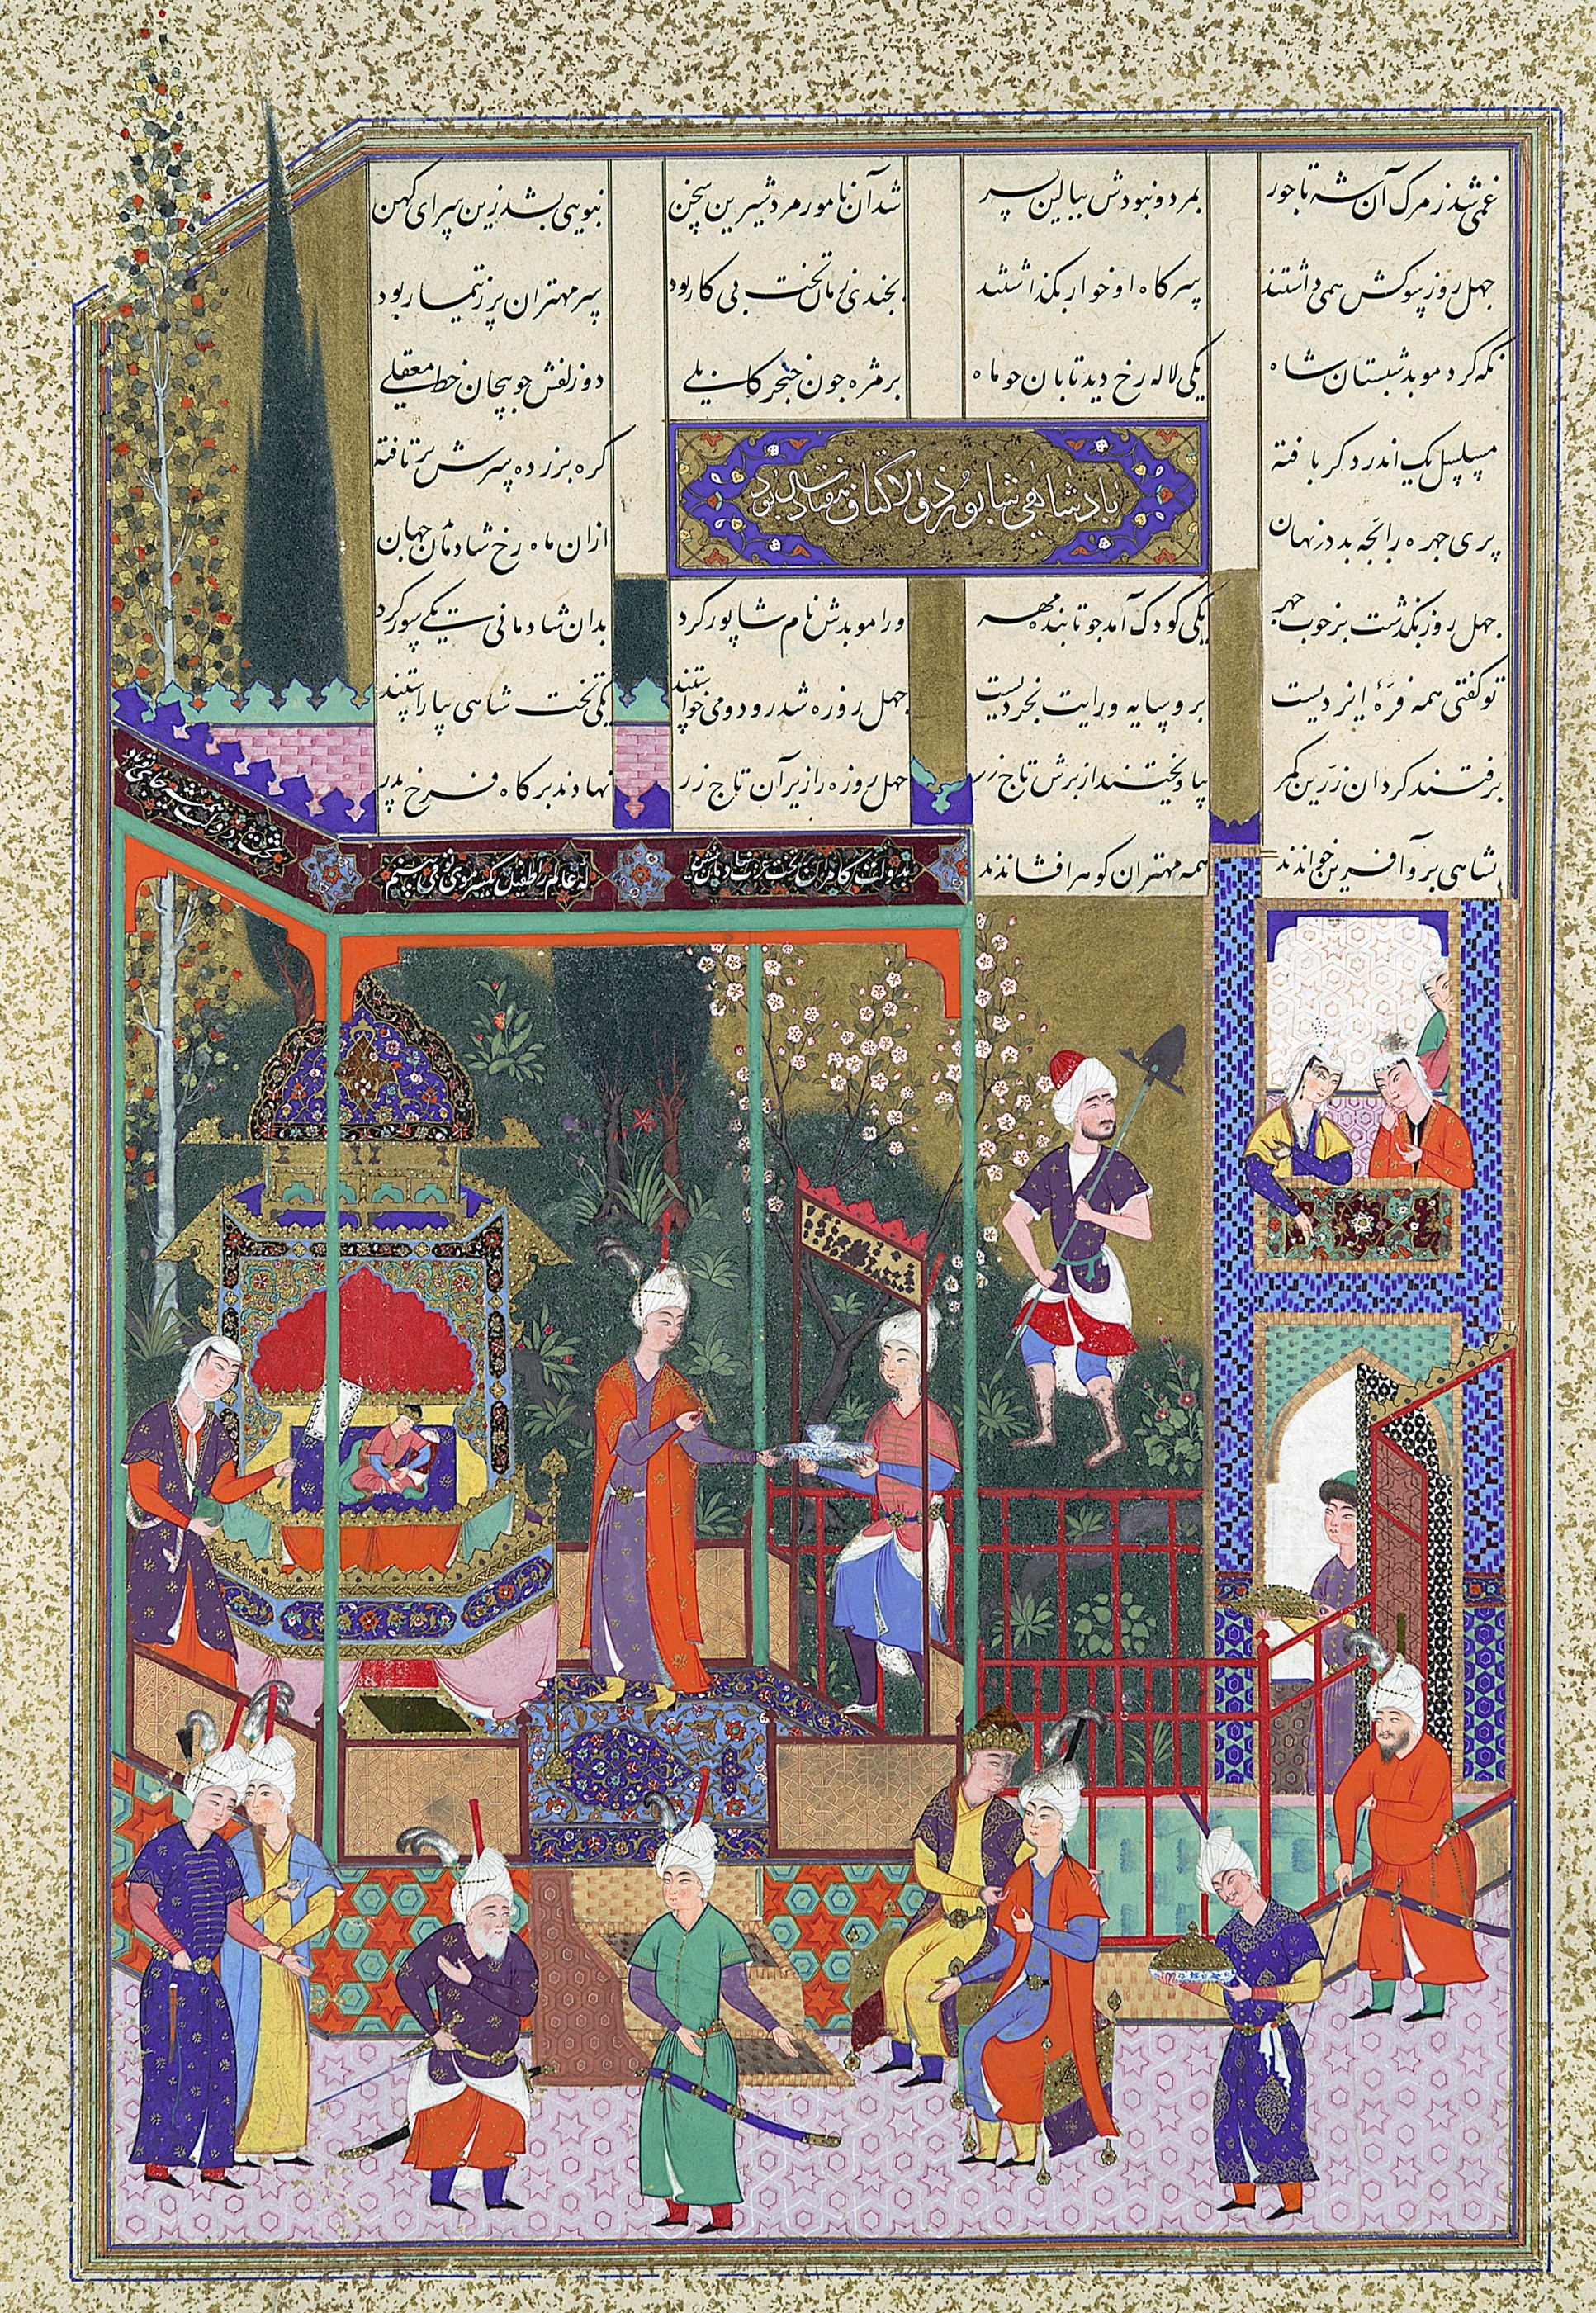 غمی شد ز مرگ آن شه تاجور بمرد و نبودش ببالین پسر شد آن نامور مرد شیرین سخن بنویی بشد زین سرای کهن
چهل روز سوکش همی داشتند سر گاه او خوار بگذاشتند بچندی زمان تخت بی کار بود سر مهتران پر ز تیمار بود
نگه کرد موبد شبستان شاه یکی لاله رخ دید تابان چو ماه بر مژه چون خنجر کابلی دو زلفش چو پیچان خط معقلی
مسلسل یک اندر دگر بافته گره بر زده سرش بر تافته
پری چهره را بچه بد در نهان ازان ماه رخ شادمان جهان
پادشاهی شاپور ذوالاکتاف هفتاد سال بود
چهل روز بگذشت بر خوب چهر یکی کودک آمد چو تابنده مهر ورا موبدش نام شاپور کرد بدان شادمانی یکی سور کرد
تو گفتی همه فرهٔ ایزدیست برو سایه و رایت بخردیست چهل روزه شد رود و می خواستند یکی تخت شاهی بیاراستند
برفتند گردان زرین کمر بیاویختند از برش تاج زر چهل روزه را زیر آن تاج زر نهادند بر گاه فرخ پدر
بشاهی برو آفرین خواندند همه مهتران گوهر افشاندند
بدولت کامران بر تخت عزت جاودان بنشین
که عالم را طفیل یکسر موی تو می بینم